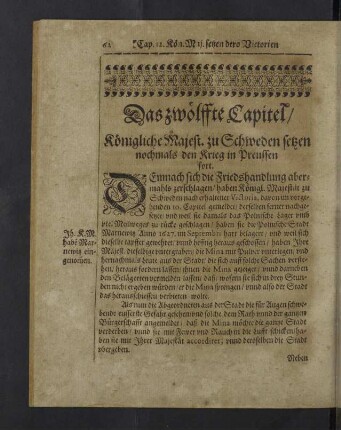 62 Cap. 12. Kön. Maj. setzen dero Victorien
Das zwölffte Capitel/
Königliche Majest. zu Schweden setzen
nochmals den Krieg in Preussen
fort.
DEmnach sich die Friedshandlung aber-
mahls zerschlagen/ haben Königl. Majestät zu
Schweden nach erhaltener Victoria, davon im vorge-
henden Capitel gemeldet/ derselben ferner nachge-
setzet/ und weil sie damals das Polnische Läger
zu rücke geschlagen/ haben sie die Polnische Stadt
Marnewitz Anno 1627. im Septembri hart belagert/ und weil sich
dieselbe tapffer gewehret/ und häfftig heraus geschossen/ haben Ihre
Majest. dieselbige untergraben/ die Mina mit Pulver
nochmals
heraus fordern lassen/ ihnen die Mina gezeiget/ und darneben
den Belägerten vermelden lassen/ daß/ wofern sie sich in drey Stun-
den nicht ergeben würden/ er die Mina sprengen/ und als der Stadt
das heraus verbieten wolte.
Als nun die Abgeordneten aus der Stadt die für Augen schwe-
bende eusserste Gefahr gesehen und solche dem Rath und der gantzen
Bürgerschafft angemeldet/ daß die Mina möchte die gantze Stadt
verderben/ und sie mit Fewer und Rauch in die Lufft schicken/ ha-
ben sie mit Ihrer Majestät accordiret/ und deroselben die Stadt
übergeben.
Neben
Ih. K. M.
habē Mar-
newitz ein-
genommē.